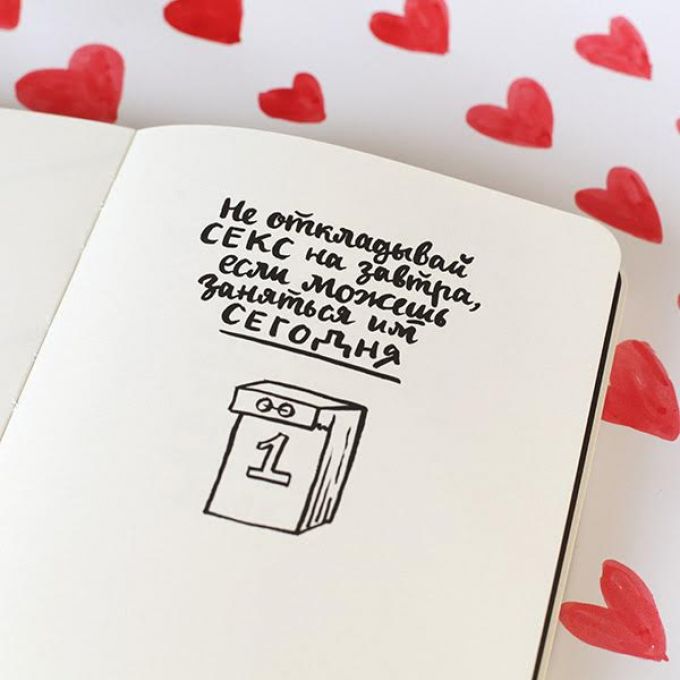 Не откладывай
СЕКС на завтра,
если можешь
заняться им
СЕГОДНЯ
1